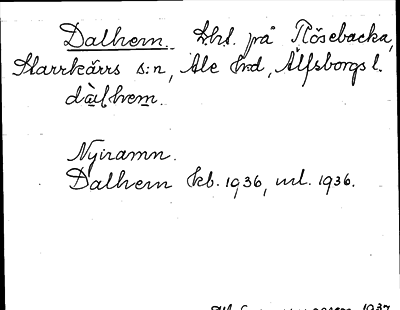 Dalhem. Lht. på Flösebacka,
Starrkärrs s:n, Ale hrd, Älfsborgs l.
dàlhem.
Nynamn.
Dalhem kb. 1936, ml. 1936.
1937